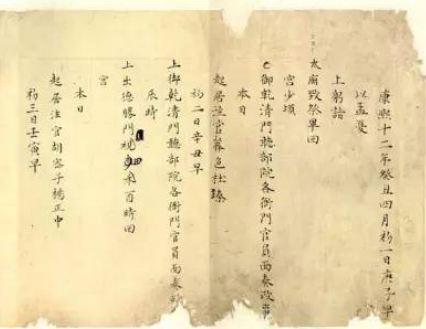 康熙十二年癸丑四月初一日庚子早
以孟夏
上躬詣
太廟致祭畢回
宮少頃
御乾清門聽部院各衙門官員面奏政事
本日
起居注官喜色杜臻
初二日辛丑早
上御乾清門聽部院各衙門官員面奏政
辰時
上出德勝門 禾酉時回
宮
本日
起居注官胡密子楊正中
初三日壬寅早